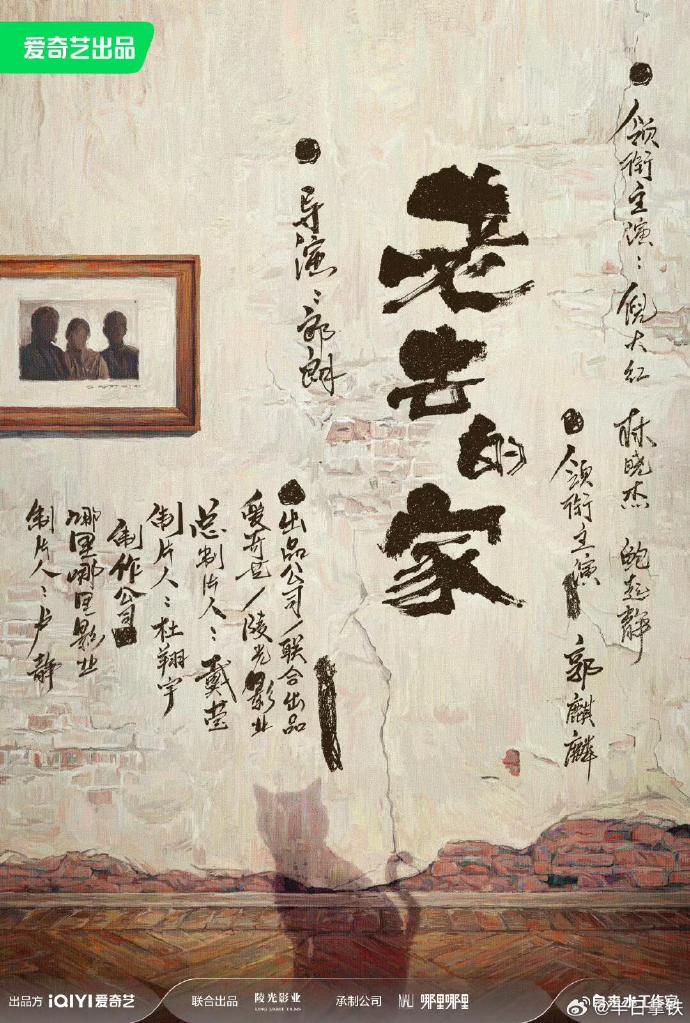 爱奇艺出品
领衔主演：倪大红 林晓杰 鲍起静
领衔主演 郭麒麟
老去的家
导演：郎朗
出品公司/联合出品
爱奇艺/陵光影业
总制片人：戴莹
制片人：杜翔宇
制作公司
哪里哪里影业
制片人：卢静
出品方 iQIYI 爱奇艺
联合出品 陵光影业
承制公司 哪里哪里
@半日拿铁